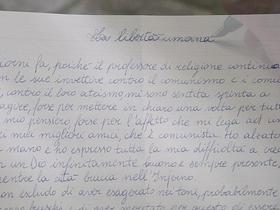 La libertà umana
giorni fa, poiché il professore di religione continua
le sue invettive contro il comunismo e i com
contro il loro ateismo, mi sono sentita spinta a
agire, forse per mettere in chiaro una volta per tutte
mio pensiero, forse per l'affetto che mi lega ad un
miei migliori amici, che è comunista. Ho alzato
mano e ho espresso tutta la mia difficoltà a cred
un Dio infinitamente buono e sempre presente,
mentre la città brucia nell'Inferno.
escludo di aver esagerato nei toni, probabilmente